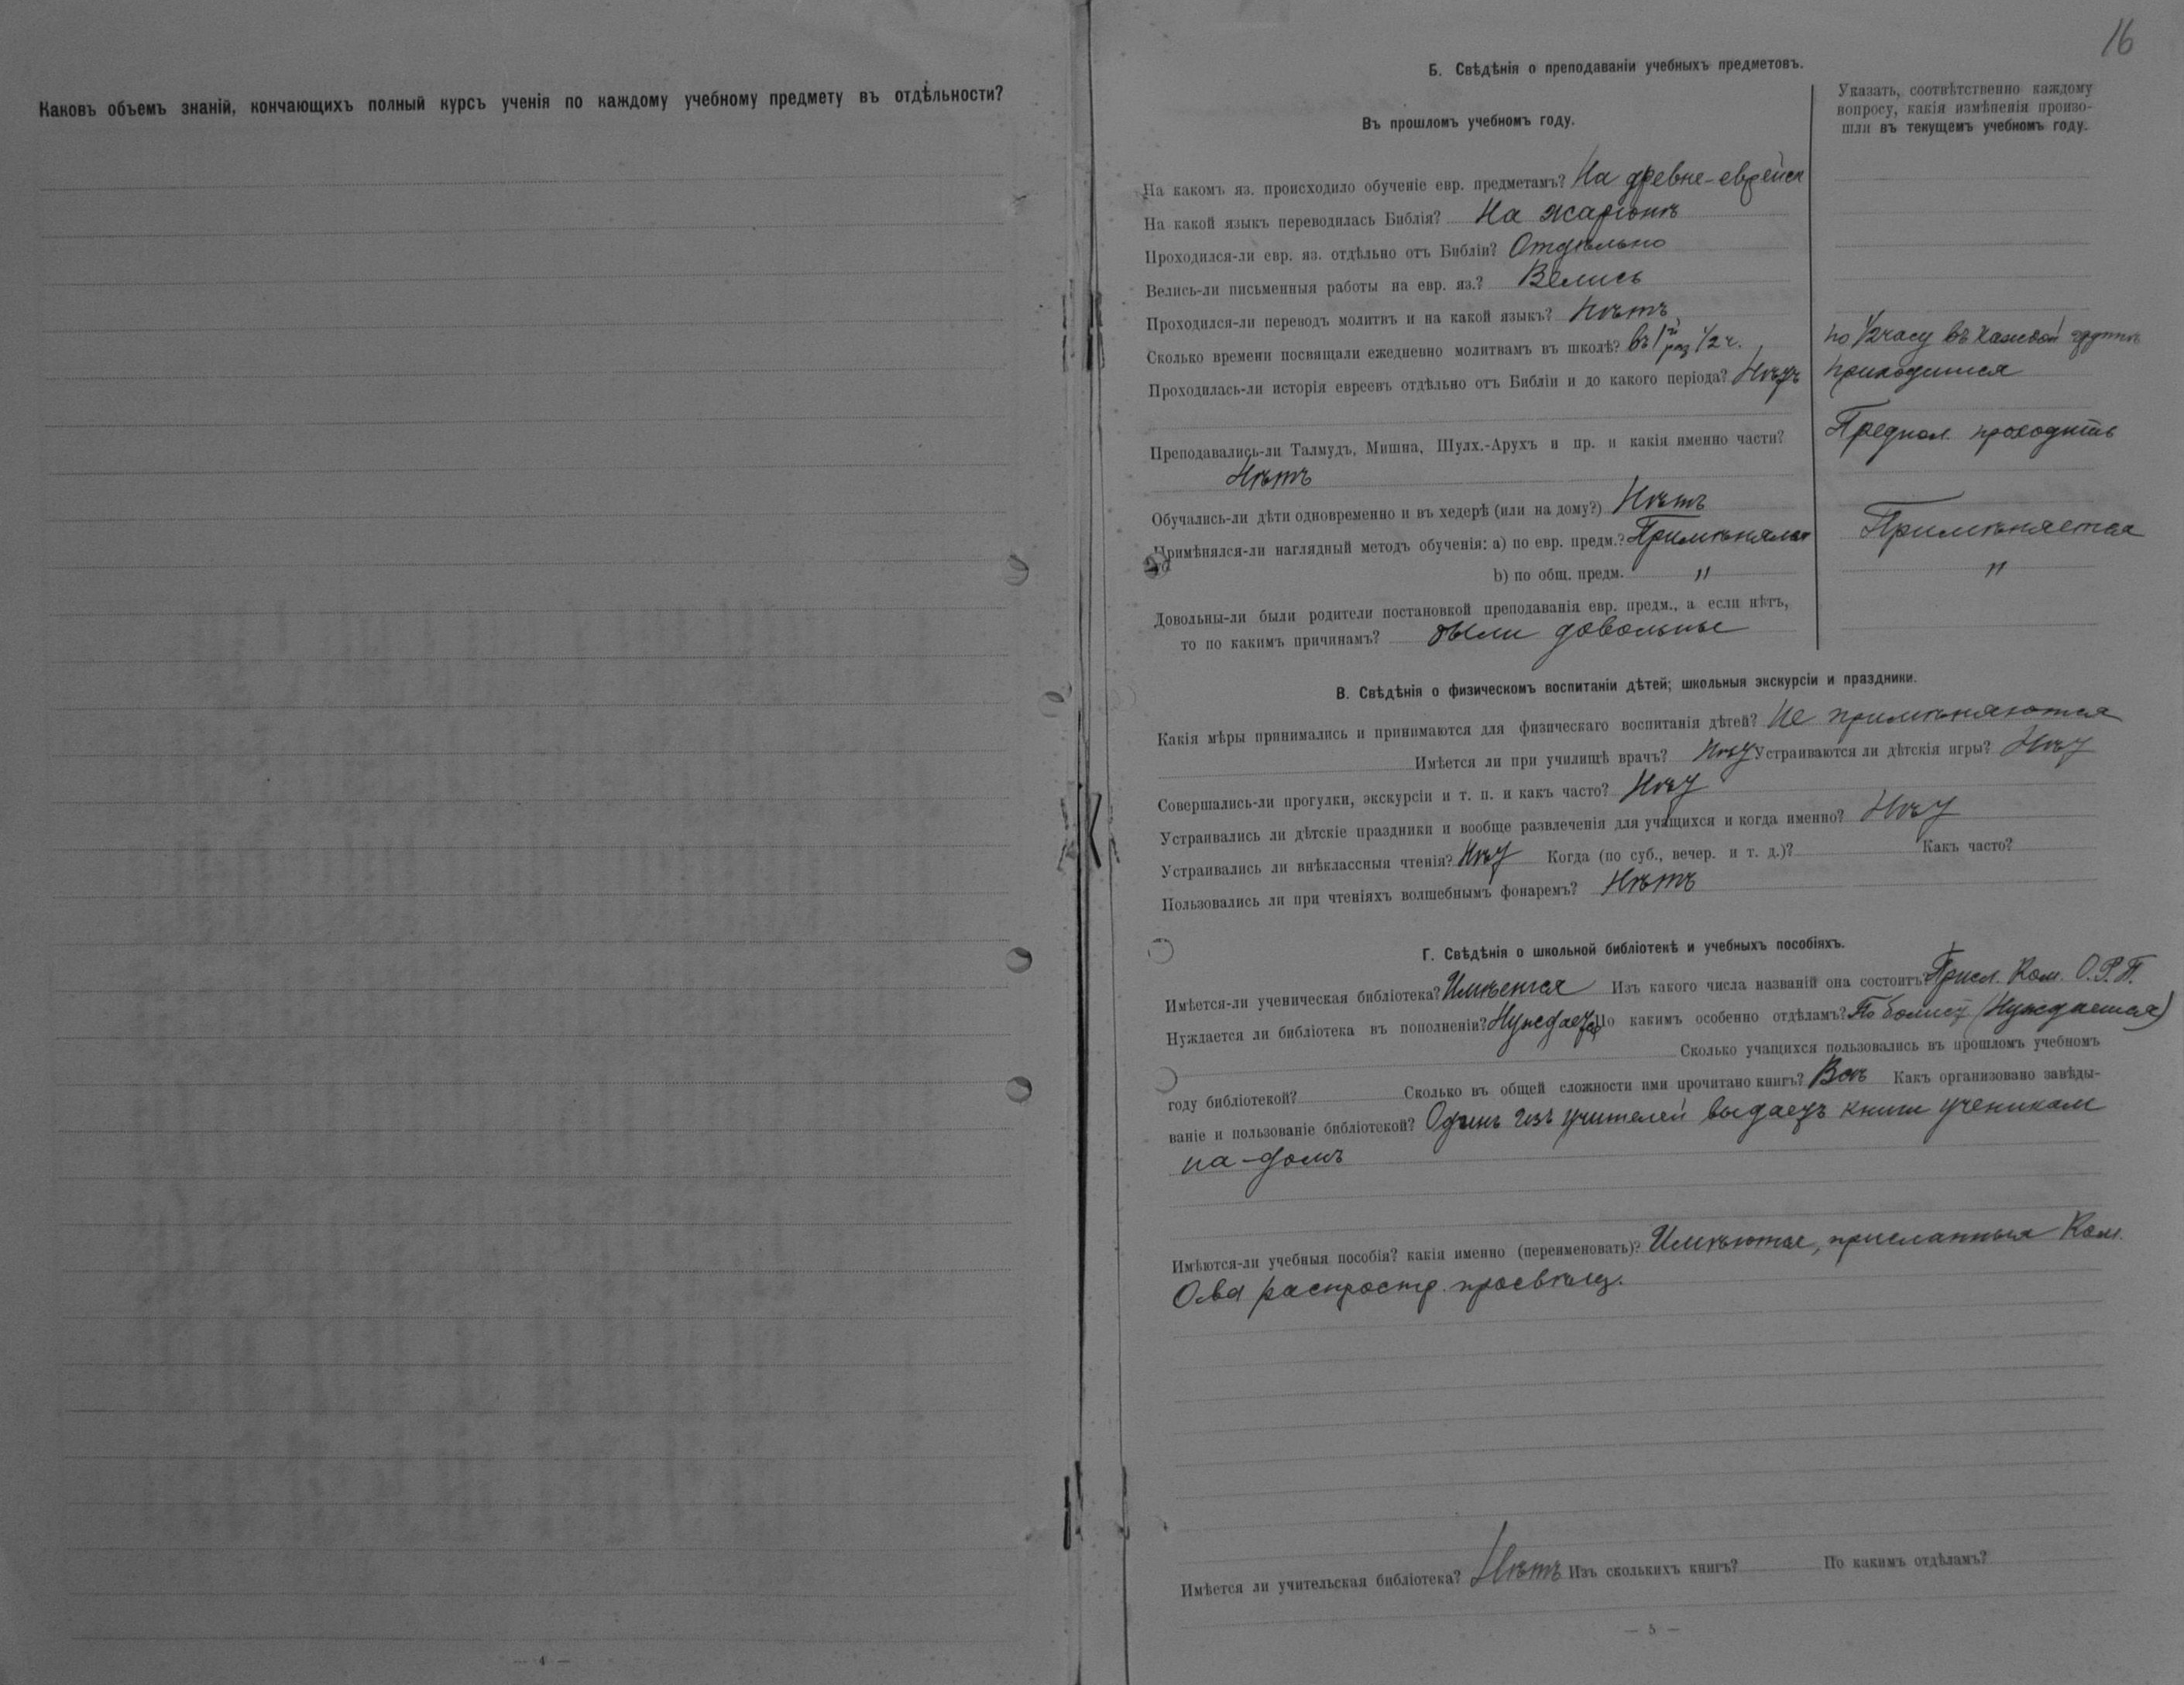 Каковъ объемъ знаній, кончающихъ полный курсъ ученія по каждому учебному предмету въ отдѣльности?
— 4 —
16
Б. Свѣдѣнія о преподаваніи учебныхъ предметовъ.
Въ прошломъ учебномъ году.
Указать, соотвѣтственно каждому
вопросу, какія измѣненія произо-
шли въ текущемъ учебномъ году.
На какомъ яз. происходило обученіе евр. предметамъ? На древне-еврейск
На какой языкъ переводилась Библія? На жаргонъ
Проходился-ли евр. яз. отдѣльно отъ Библіи? Отдѣльно
Велись-ли письменныя работы на евр. яз.? Велись
Проходился-ли переводъ молитвъ и на какой языкъ? Нѣтъ
Сколько времени посвящали ежедневно молитвамъ въ школѣ? въ 1й раз 1/2 ч. по 1/2 часу въ каждой группѣ
Проходилась-ли исторія евреевъ отдѣльно отъ Библіи и до какого періода? Нѣтъ Проходится
Преподавались-ли Талмудъ, Мишна, Шулх.-Арухъ и пр. и какія именно части? Предпол. проходить
Нѣтъ
Обучались-ли дѣти одновременно и въ хедерѣ (или на дому?) Нѣтъ
Примѣнялся-ли наглядный методъ обученія: а) по евр. предм.? Примѣнялся Примѣняется
b) по общ. предм. " "
Довольны-ли были родители постановкой преподаванія евр. предм., а если нѣтъ,
то по какимъ причинамъ? были довольны
В. Свѣдѣнія о физическомъ воспитаніи дѣтей; школьныя экскурсіи и праздники.
Какія мѣры принимались и принимаются для физическаго воспитанія дѣтей? Не примѣняются
Имѣется ли при училищѣ врачъ? Нѣт Устраиваются ли дѣтскія игры? Нѣт
Совершались-ли прогулки, экскурсіи и т. п. и какъ часто? Нѣт
Устраивались ли дѣтскіе праздники и вообще развлеченія для учащихся и когда именно? Нѣт
Устраивались ли внѣклассныя чтенія? Нѣт Когда (по суб., вечер. и т. д.)? Какъ часто?
Пользовались ли при чтеніяхъ волшебнымъ фонаремъ? Нѣтъ
Г. Свѣдѣнія о школьной библіотекѣ и учебныхъ пособіяхъ.
Имѣется-ли ученическая библіотека? Имѣется Изъ какого числа названій она состоитъ? Присл. Ком. О.Р.П.
Нуждается ли библіотека въ пополненіи? Нуждается По какимъ особенно отдѣламъ? По (Нуждается)
Сколько учащихся пользовались въ прошломъ учебномъ
году библіотекой? Сколько въ общей сложности ими прочитано книгъ? Всѣ Какъ организовано завѣды-
ваніе и пользованіе библіотекой? Одинъ изъ учителей выдаетъ книги ученикам
на-домъ
Имѣются-ли учебныя пособія? какія именно (переименовать)? Имѣются, присланныя Ком.
О-ва распростр. просвѣщ.
Имѣется ли учительская библіотека? Нѣтъ Изъ сколькихъ книгъ? По какимъ отдѣламъ?
— 5 —